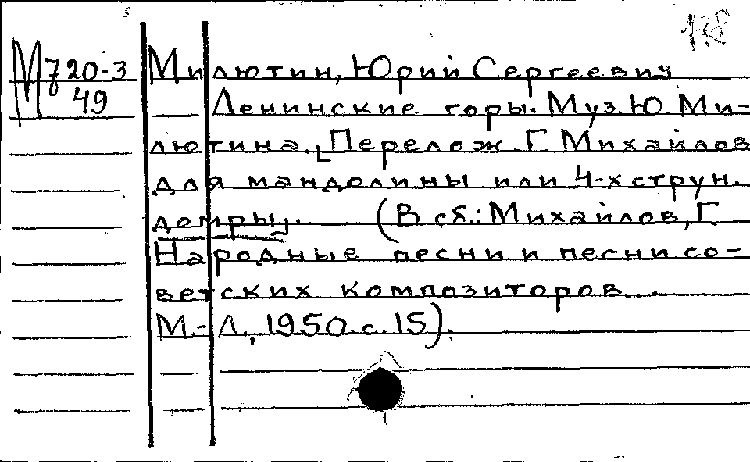 М720-3 Милютин, Юрий Сергеевич
49 Ленинские горы. Муз. Ю. Ми-
лютина. [Перелож. Г. Михайлов
для мандолины или 4-х струн.
домры]. (В сб.: Михайлов, Г.
Народные песни и песни со-
ветских композиторов.
М.-Л., 1950. с. 15).